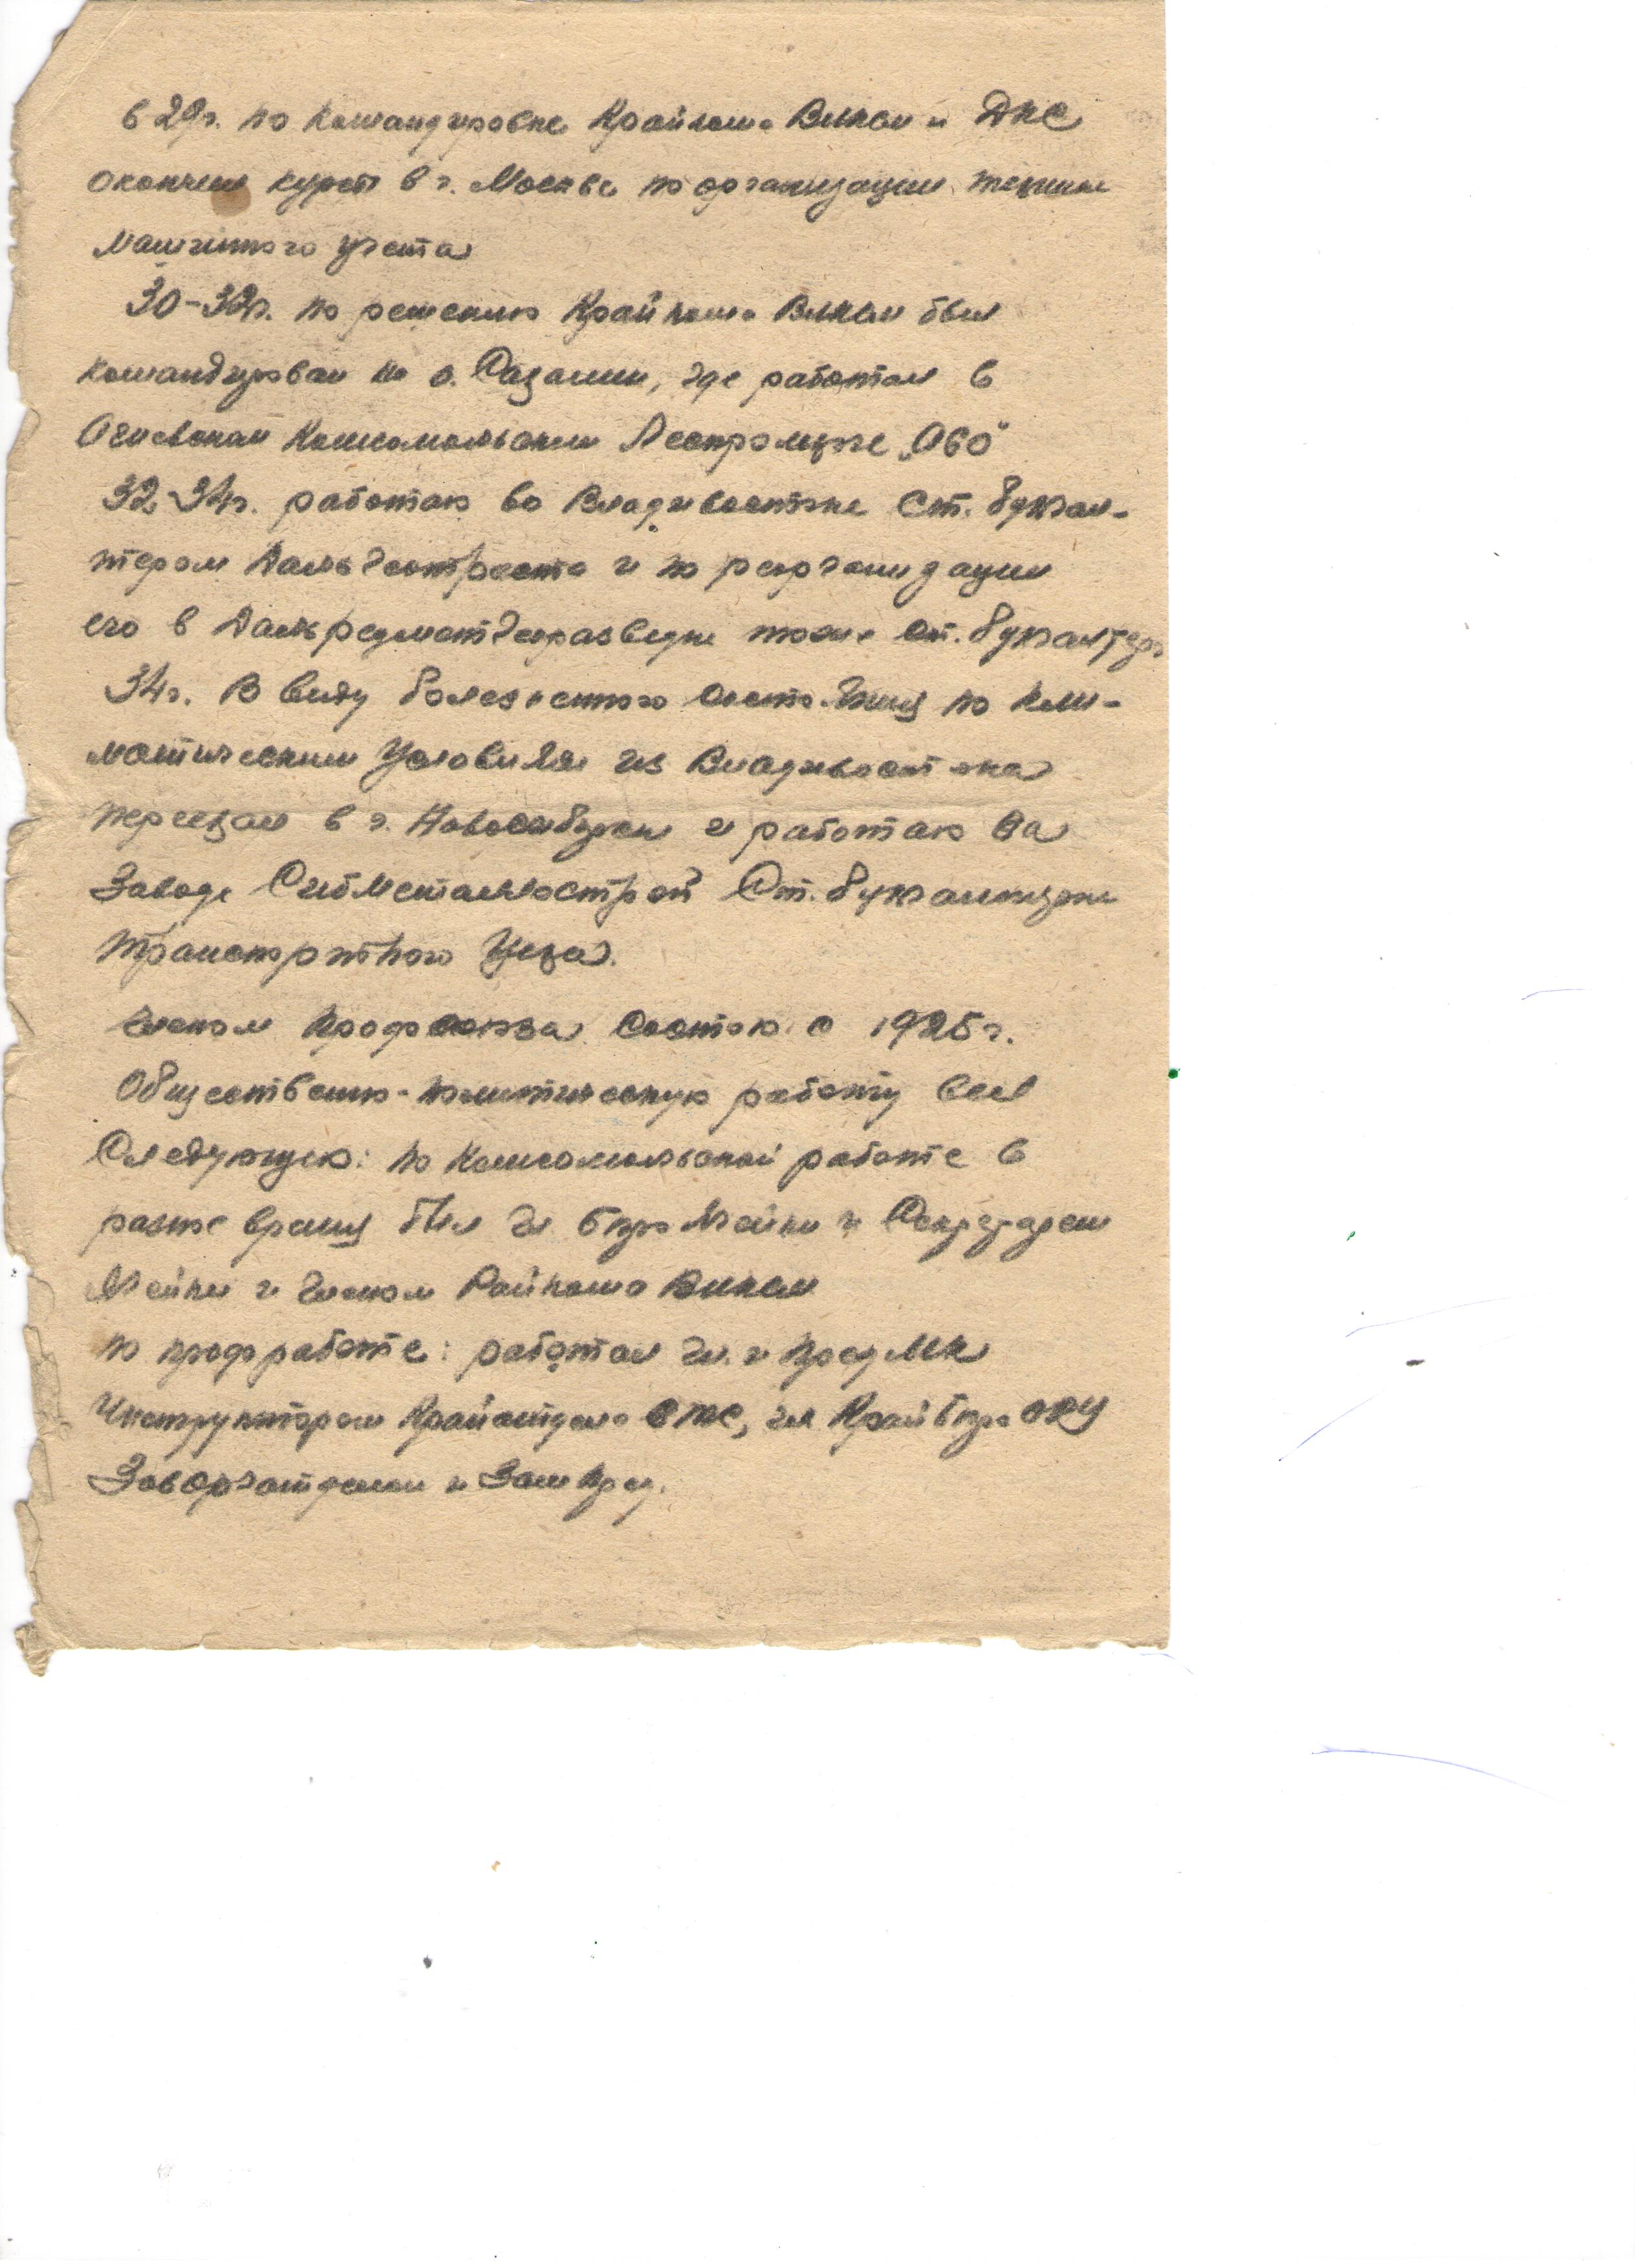 в 29г. по командировке Крайкома ВЛКСМ и ДКС
окончил курсы в г. Москве по организации техники
машинного учета
30-32г. по решению Крайкома ВЛКСМ был
командирован на о. Сахалин, где работал в
Комсомольском Леспромхозе „ОГО"
32-34г. работаю во Владивостоке Ст. бухгал-
тером Дальгеотреста и по реорганизации
его в Дальредметгеоразведку тоже ст. бухгалтер
34г. В виду болезненного состояния по кли-
матическим условиям из Владивостока
переехал в г. Новосибирск и работаю на
Заводе Сибметаллострой Ст. бухгалтером
транспортного Цеха.
Членом профсоюза состою с 1925г.
Общественно-политическую работу вел
Следующую: по комсомольской работе в
разное время был чл. бюро ячейки и Секретарем
Ячейки и членом Райкома ВЛКСМ
по профработе: работал чл. и Пред МК
Инструктором Крайотдела СТС, чл Крайбюро
Заворготделом и Зам Пред.